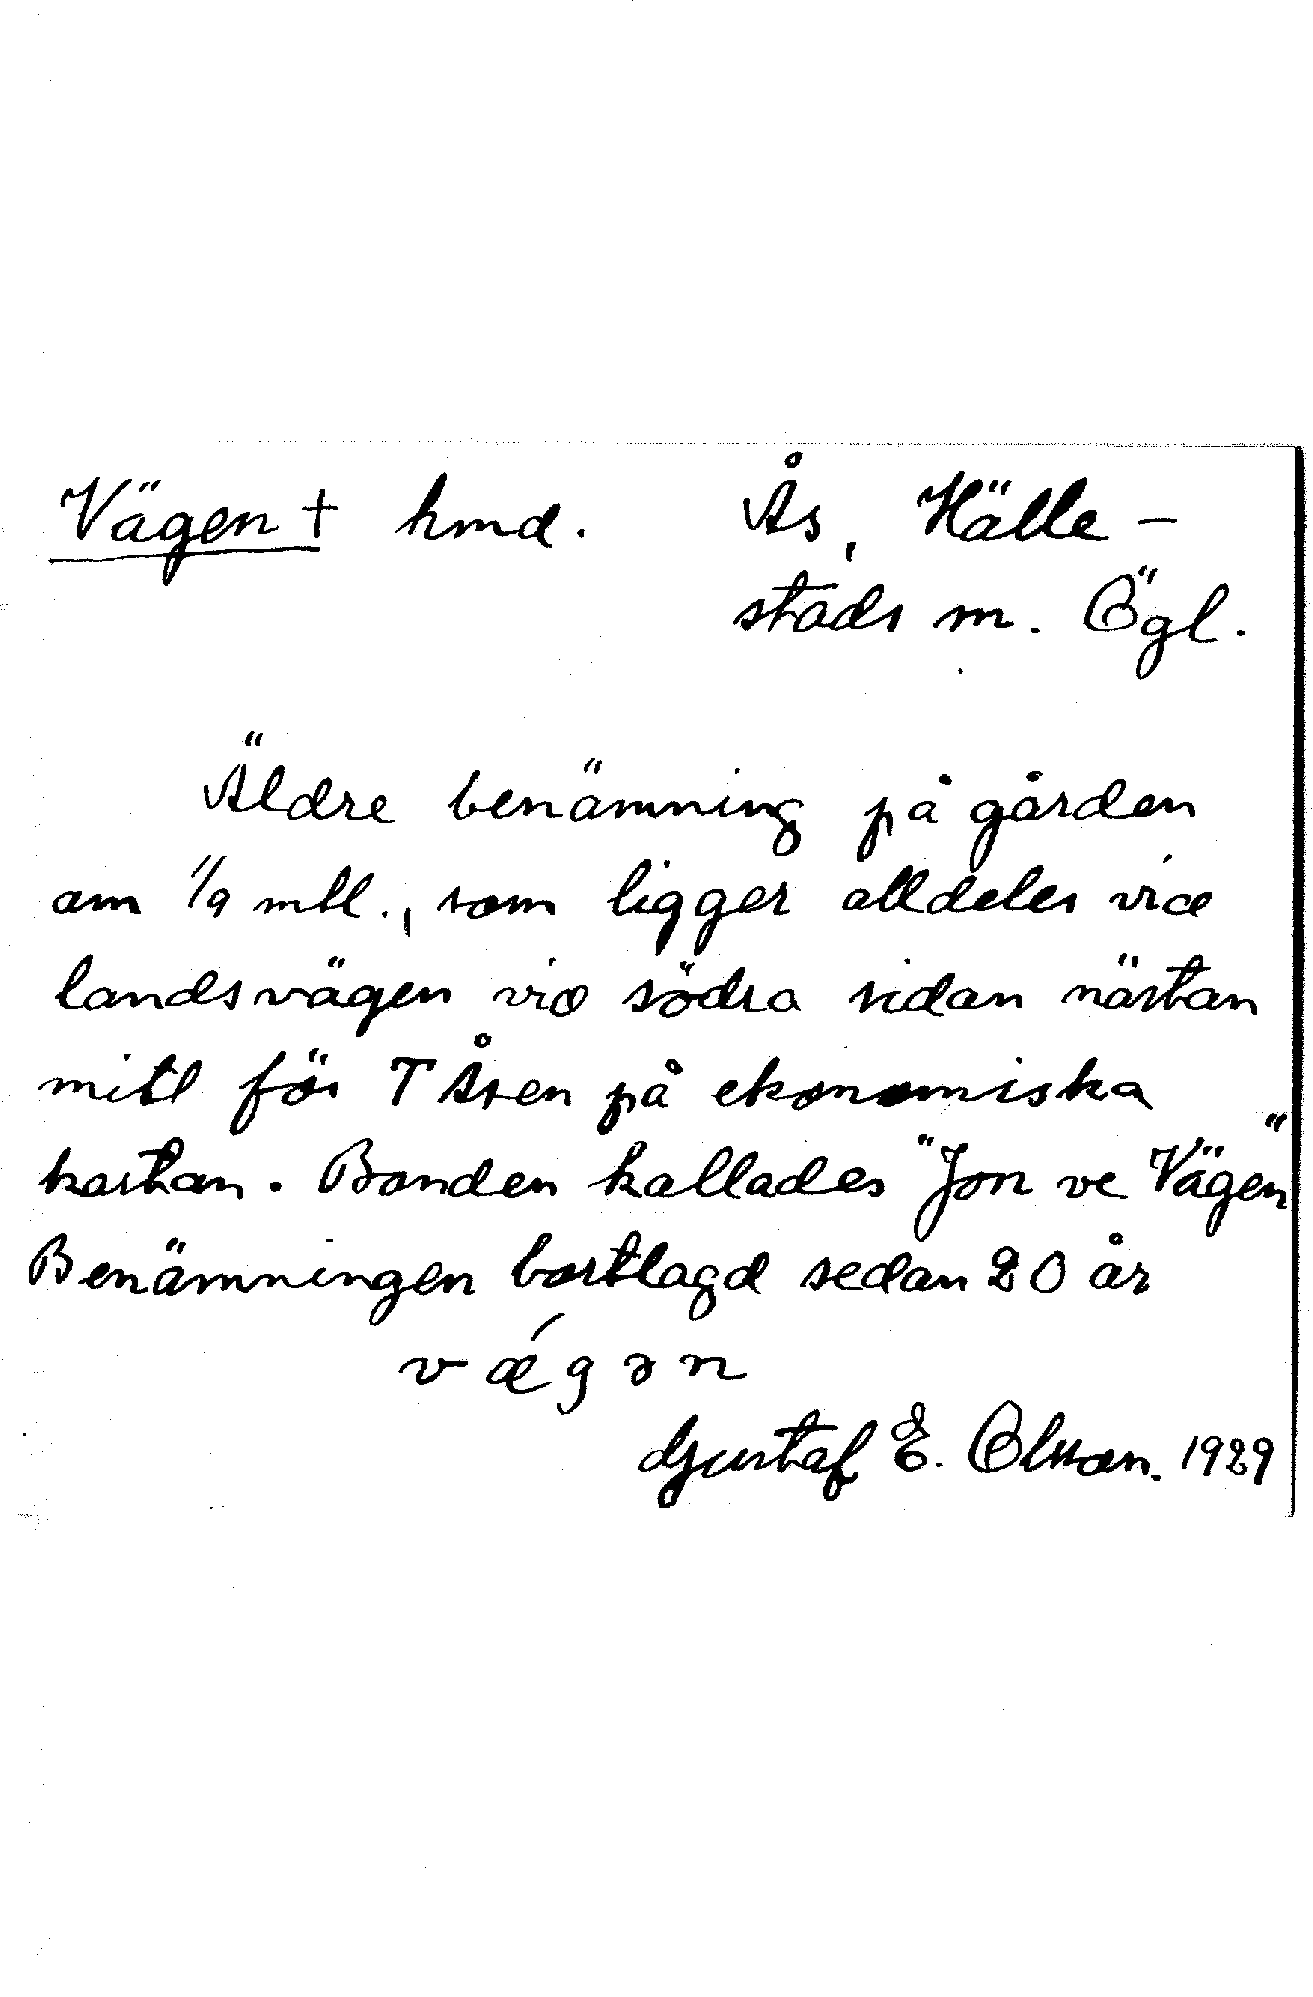 Vägen + hmd. Ås, Hälle-
stads sn. Ögl.
Äldre benämning på gården
om 1/9 mtl., som ligger alldeles vid
landsvägen vid södra sidan nästan
mitt för T Åsen på ekonomiska
kartan. Bonden kallades "Jon ve Vägen"
Benämningen bortlagd sedan 20 år
vǽgən
Gustaf E. Olsson. 1929